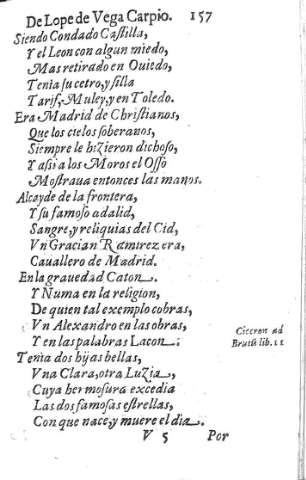 De Lope de Vega Carpio. 157
Siendo Condado Castilla,
Y el Leon con algun miedo,
Mas retirado en Ouiedo,
Tenia su cetro, y silla
Tarif, Muley, y en Toledo.
Era Madrid de Christianos,
Que los cielos soberanos,
Siempre le hizieron dichoso,
Y assi a los Moros el Osso
Mostraua entonces las manos.
Alcayde de la frontera,
Y su famoso adalid,
Sangre, y reliquias del Cid,
Vn Gracian Ramirez era,
Cauallero de Madrid.
En la grauedad Caton.
Y Numa en la religion,
De quien tal exemplo cobras,
Vn Alexandro en las obras,
Y en las palabras Lacon:
Ciceron ad
Brutũ lib. 11
Tenia dos hijas bellas,
Vna Clara, otra Luzia,
Cuya hermosura excedia
Las dos famosas estrellas,
Con que nace, y muere el dia.
V 5 Por